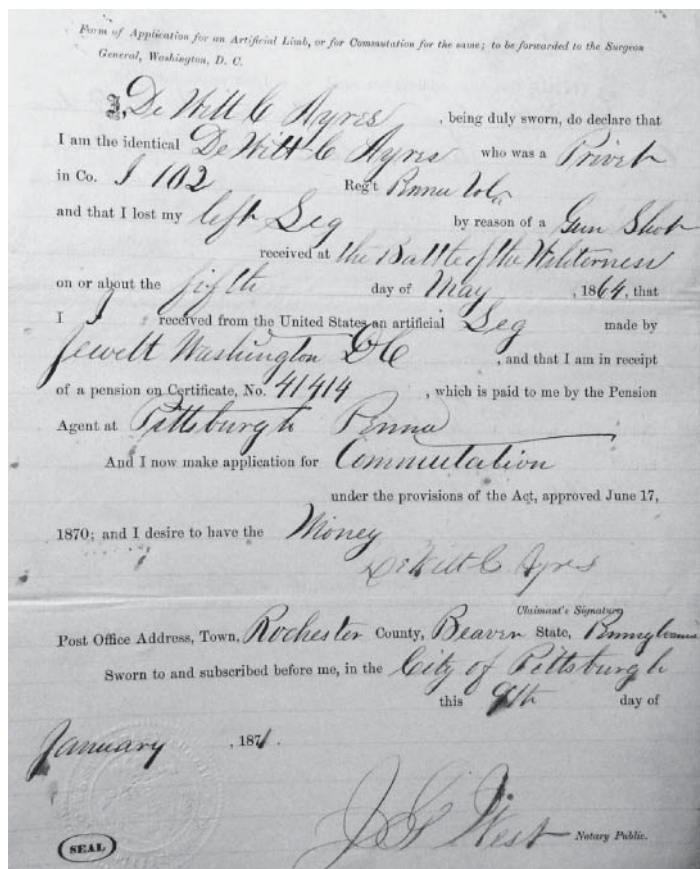 Form of Application for an Artificial Limb, or for Commutation for the same; to be forwarded to the Surgeon
General, Washington, D. C.
I, De Witt C Ayres, being duly sworn, do declare that
I am the identical De Witt C Ayres who was a Privet
in Co. I 102 Reg't Penna Vol
and that I lost my left Leg by reason of a Gun Shot
received at the Battle of the Wilderness
on or about the fifth day of May, 1864, that
I received from the United States an artificial Leg made by
Jewett Washington DC, and that I am in receipt
of a pension on Certificate, No. 41414, which is paid to me by the Pension
Agent at Pittsburgh Penna
And I now make application for Commutation
under the provisions of the Act, approved June 17,
1870; and I desire to have the Money
DeWitt C Ayres
Claimant's Signature
Post Office Address, Town, Rochester County, Beaver State, Pennsylvania
Sworn to and subscribed before me, in the City of Pittsburgh
this 9th day of
January, 1871.
J G West Notary Public.
SEAL